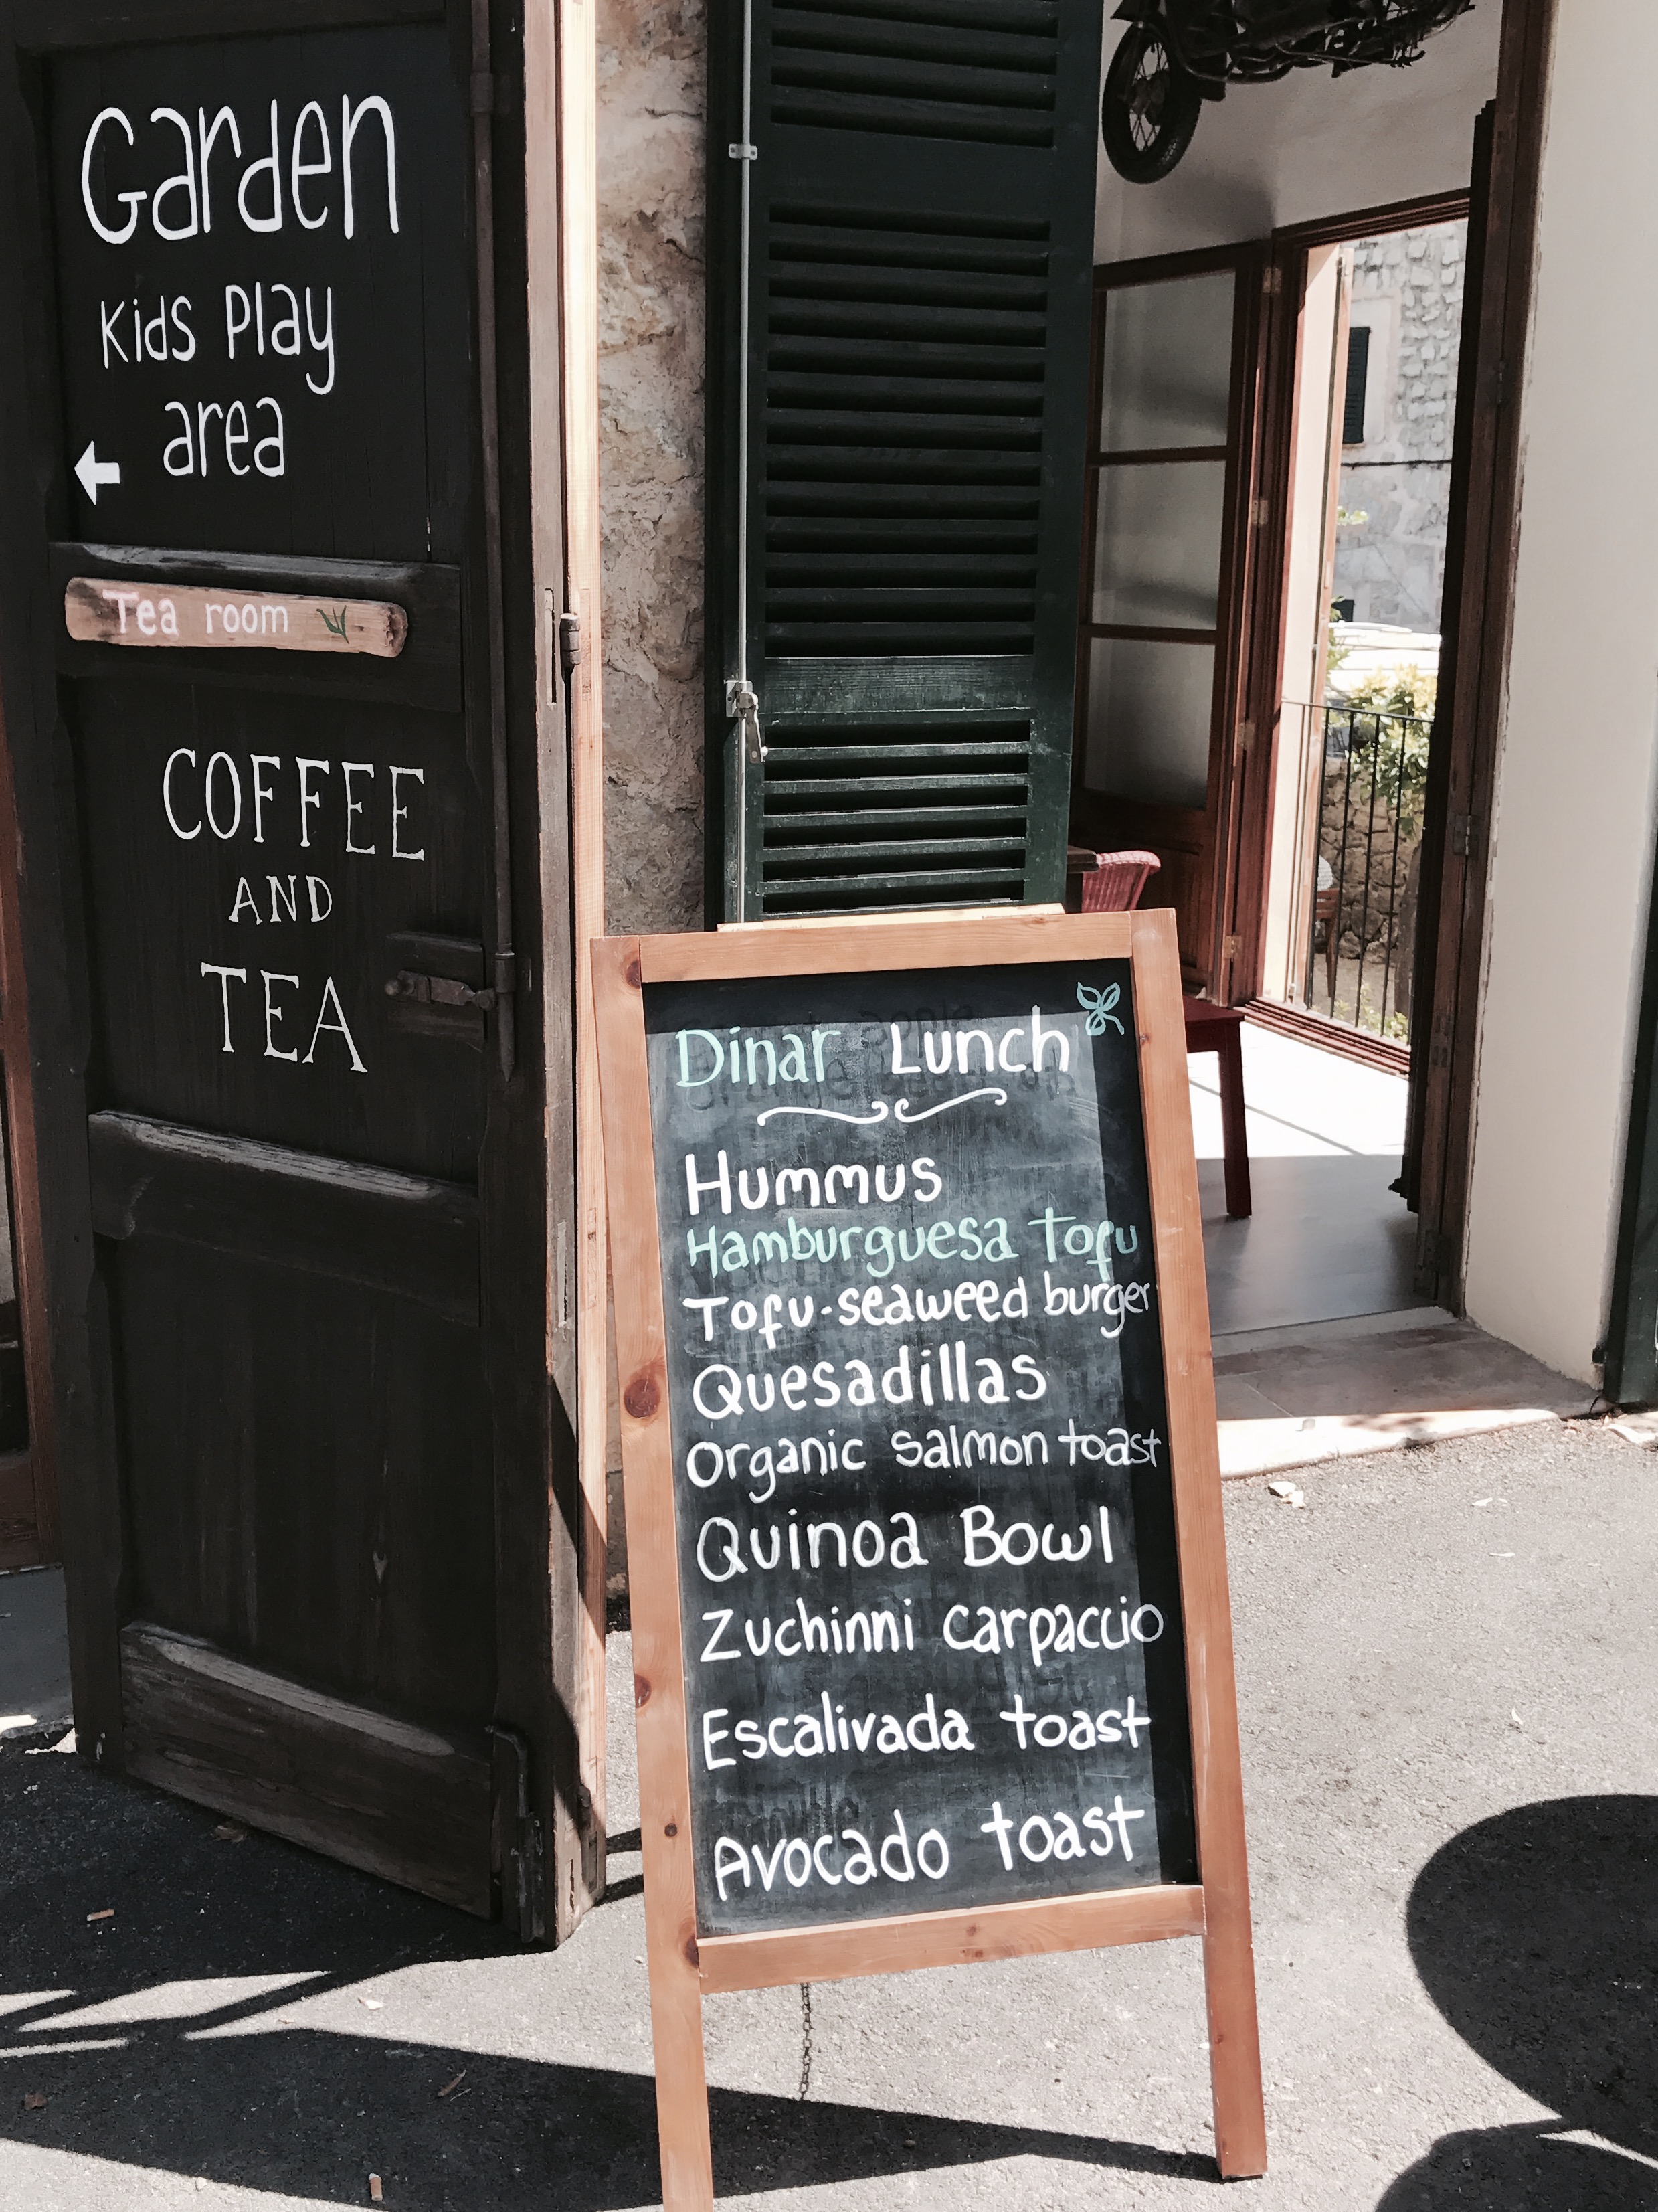 Garden
Kids Play
area
Tea room
COFFEE
AND
TEA
Dinar Lunch
Hummus
Hamburguesa tofu
Tofu-seaweed burger
Quesadillas
Organic salmon toast
Quinoa Bowl
Zuchinni carpaccio
Escalivada toast
Avocado toast